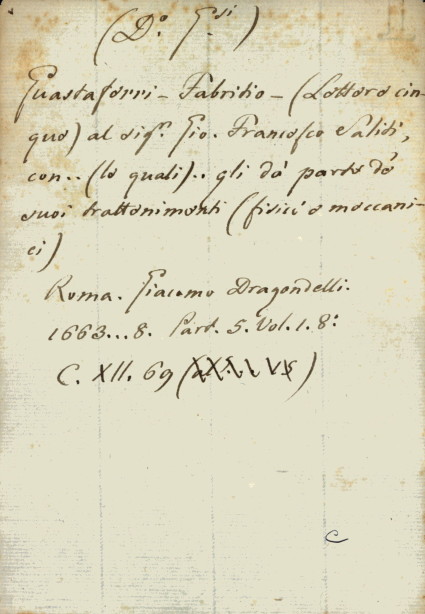 (D.º G.si)
Guastaferri - Fabritio - (Lettere cin-
que) al sig.r Gio. Francesco Saliti,
con.. (le quali).. gli dà parte de'
suoi trattenimenti (fisici e meccani-
ci)
Roma. Giacomo Dragondelli.
1663...8. Part. 5. Vol. 1. 8.º
C. XII. 69 ( )
C